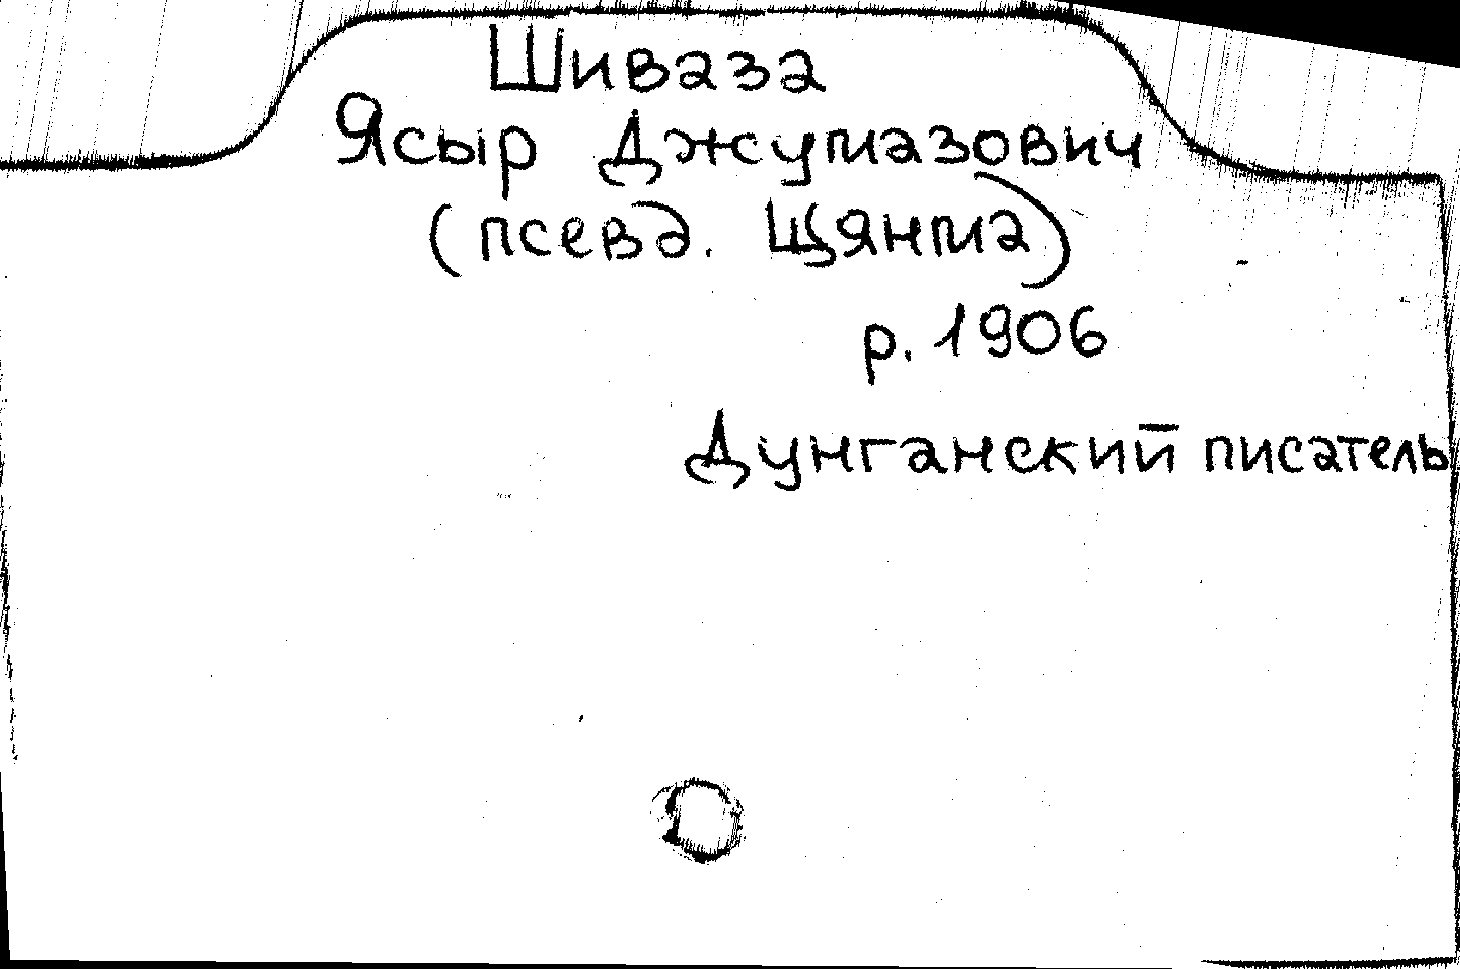 Шиваза
Ясыр Джумазович
(псевд. Щянма)
р. 1906
Дунганский писатель